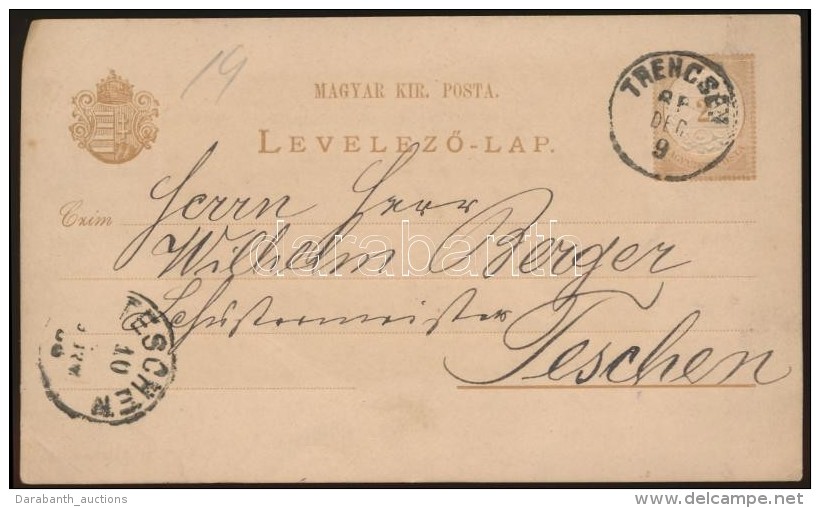 19
MAGYAR KIR. POSTA.
LEVELEZŐ-LAP.
TRENCSÉN
DEC.
9
2
Czim
Herrn Herr
Wilhelm Berger
Schustermeister
Teschen
TESCHEN
10
darabanth
Darabanth_auctions
www.delcampe.net